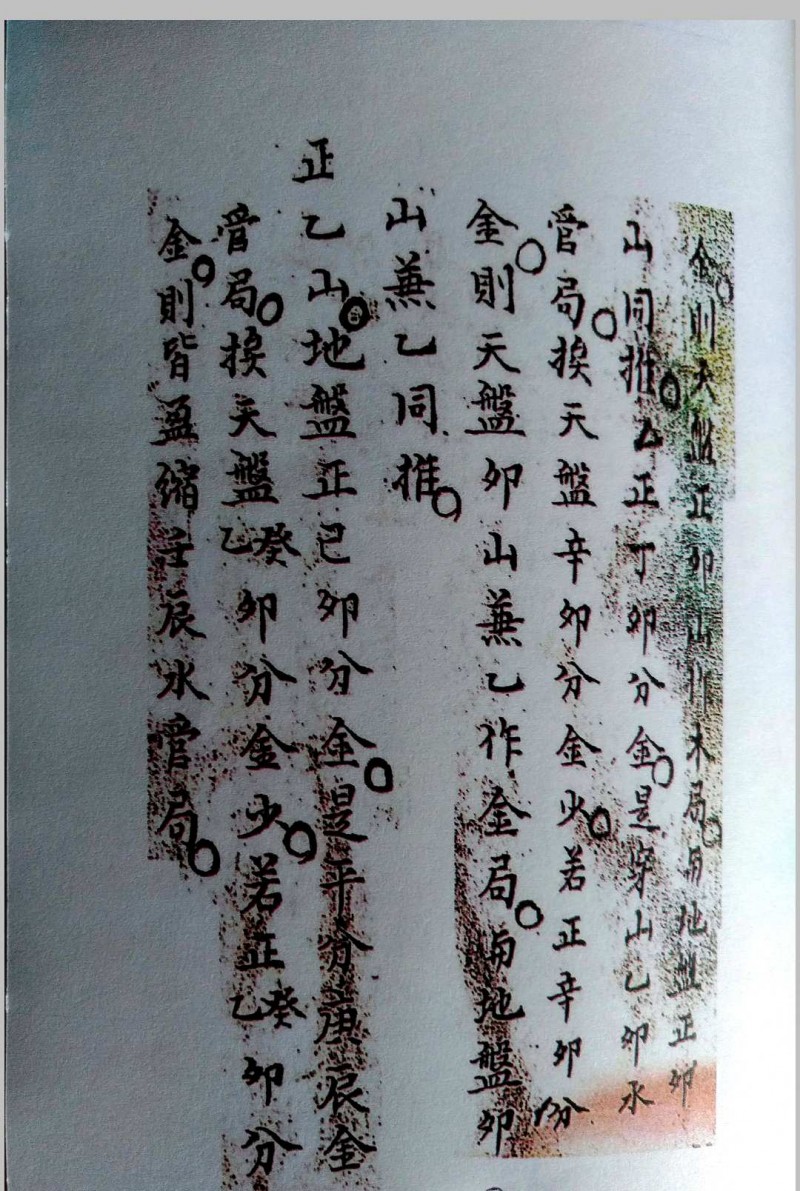 金則天盤正卯山作木局與地盤正卯
山同推乙正丁卯分金是穿山乙卯水
管局挨天盤辛卯分金少若正辛卯份
金則天盤卯山蕪乙作金局與地盤卯
山蕪乙同推
正乙山地盤正己卯分金是平分庚辰金
管局挨天盤乙癸卯分金少若正乙癸卯分
金則皆盈縮壬辰水管局